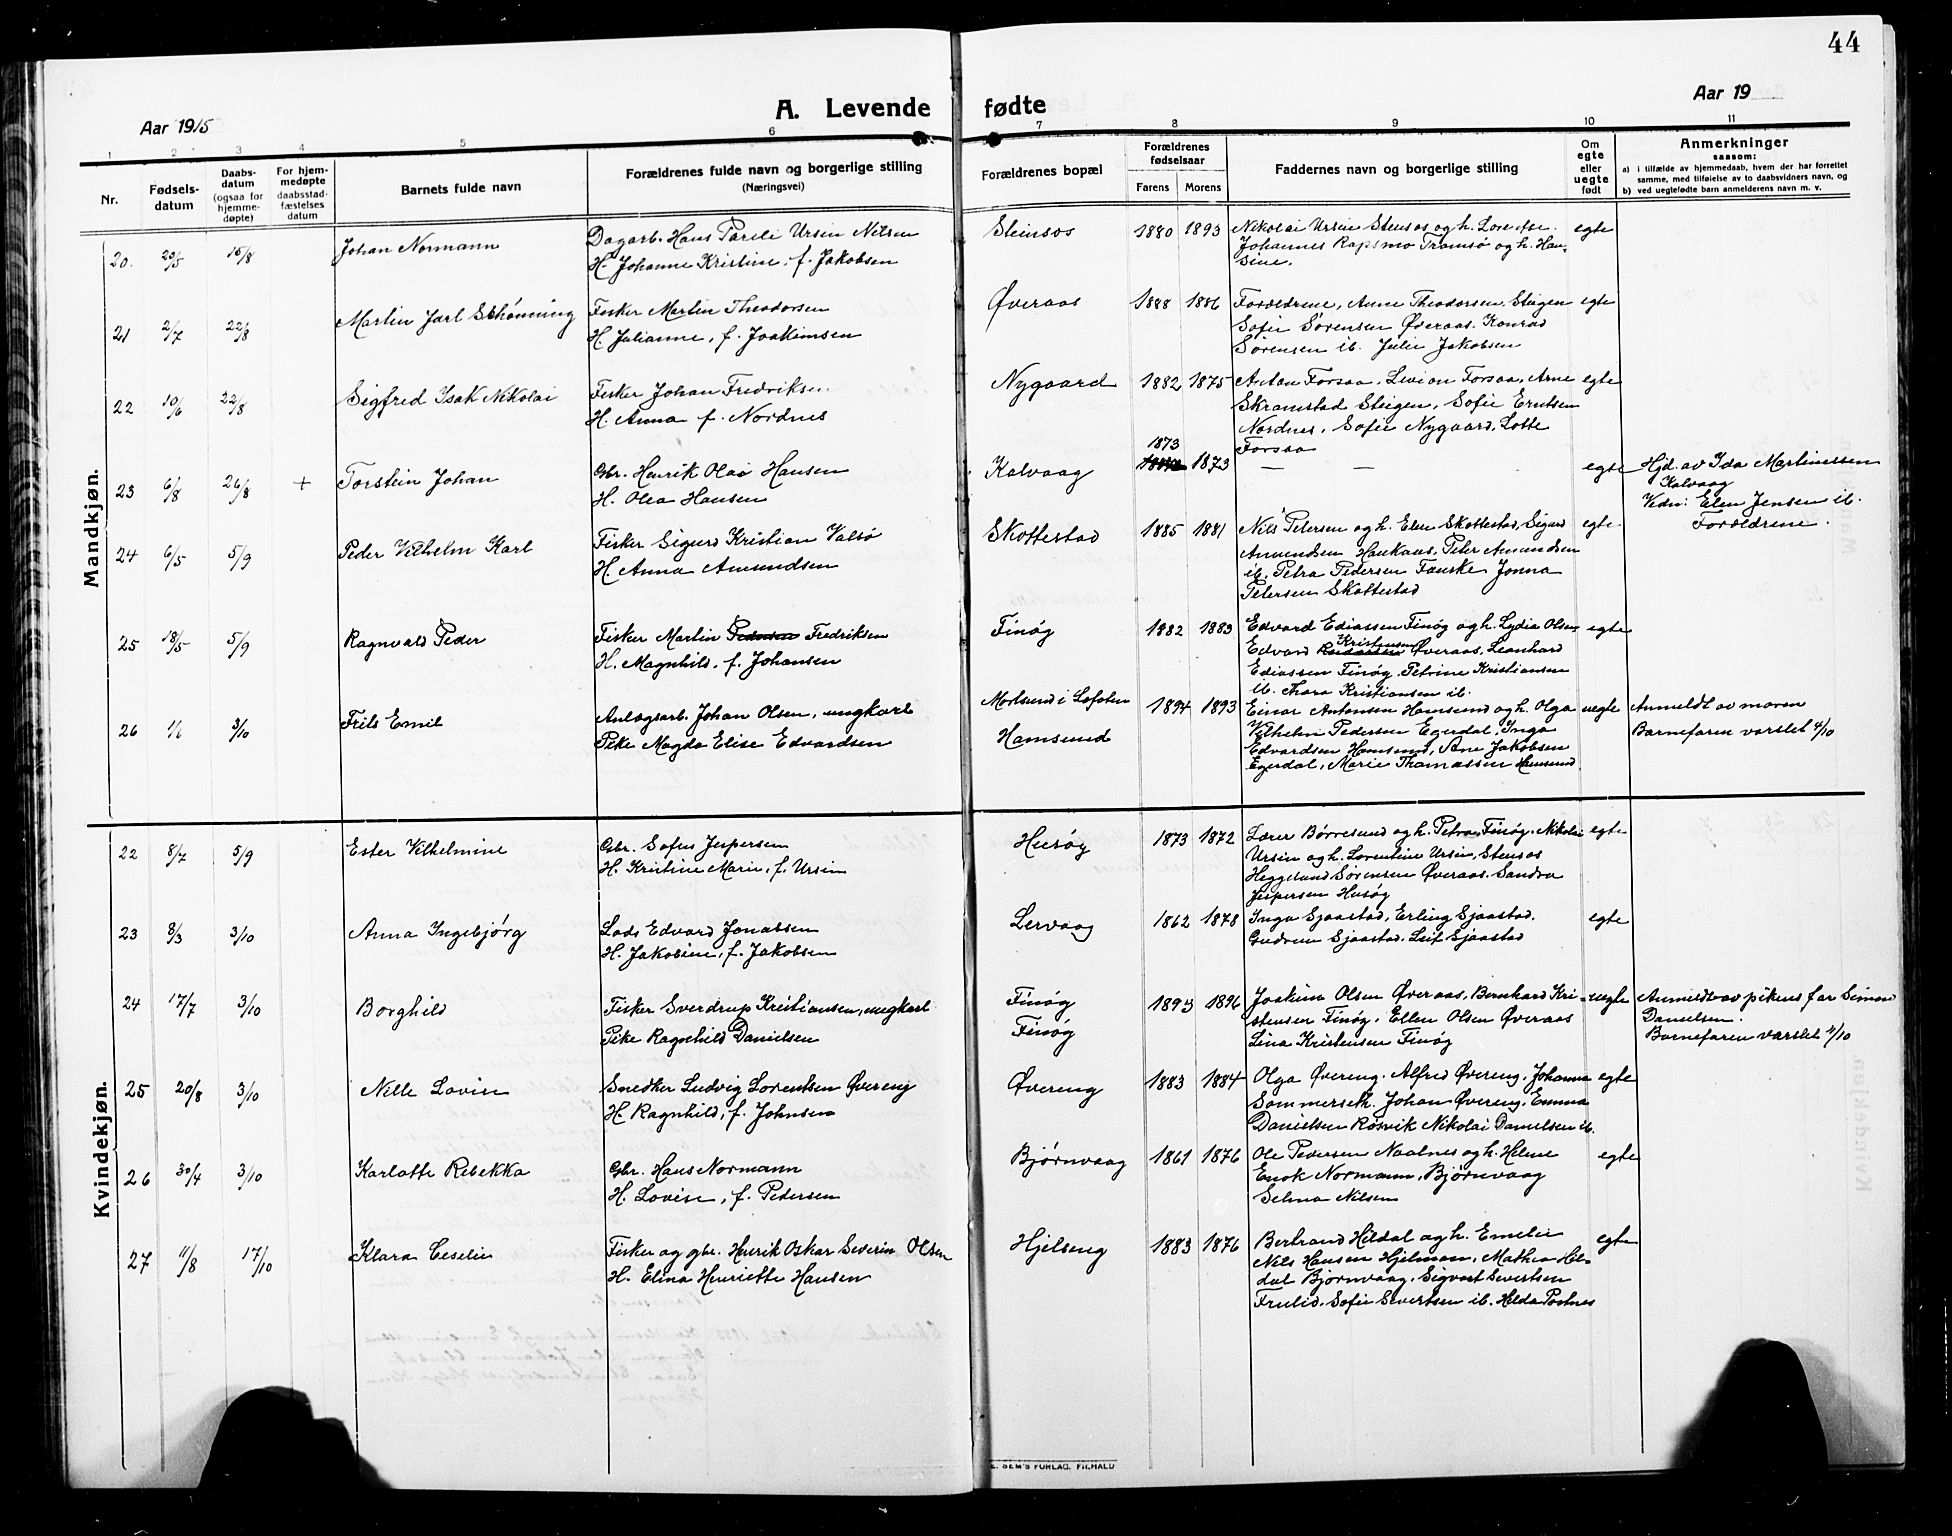 44
Aar 1915
A. Levende fødte
Aar 19
1 2 3 4 5 6 7 8 9 10 11
Nr.
Fødsels-
datum
Daabs-
datum
(ogsaa for
hjemme-
døpte)
For hjem-
medøpte
daabsstad-
fæstelses
datum
Barnets fulde navn
Forældrenes fulde navn og borgerlige stilling
(Næringsvei)
Forældrenes bopæl
Forældrenes
fødselsaar
Farens Morens
Faddernes navn og borgerlige stilling
Om
egte
eller
uegte
født
Anmerkninger
saasom:
a) i tilfælde av hjemmedaab, hvem der har forrettet
samme, med tilføielse av to daabsvidners navn, og
b) ved uegtefødte barn anmelderens navn m. v.
Mandkjøn.
20. 20/5 15/8 Johan Normann
Dagarb. Hans Pareli Ursin Nilsen
H. Johanne Kristine, f. Jakobsen
Steinsos 1880 1893
Nikolai Ursin Stensos og h. Lorentse.
Johannes Rapsmo Tromsø og h. Han-
sine.
egte
21 2/7 22/8 Martin Jarl Schønning
Fisker Martin Theodorsen
H. Julianne, f. Joakimsen
Øveraas 1888 1886
Forældrene, Anne Theodorsen Steigen
Sofie Sørensen Øveraas. Konrad
Sørensen ib. Julie Jakobsen
egte
22 10/6 22/8 Sigfred Isak Nikolai
Fisker Johan Fredriksen
H. Anna f. Nordnes
Nygaard 1882 1875
Anton Forsaa, Levion Forsaa, Arne
Skramstad Steigen, Sofie Erntsen
Nordnes, Sofie Nygaard, Lotte
Forsaa
egte
23 6/8 26/8 + Torstein Johan
Gbr. Henrik Olai Hansen
H. Olea Hansen
Kalvaag 1873 1873
— —
egte
Hjd. av Ida Martinussen
Kalvaag
Vidn: Elen Jensen ib.
Forældrene.
24 6/5 5/9 Peder Vilhelm Karl
Fisker Sigurd Kristian Valsø
H. Anna Amundsen
Skottestad 1885 1881
Nils Petersen og h. Elen Skottestad, Sigurd
Amundsen Haukaas, Peter Amundsen
ib. Petra Pedersen Fauske Jonna
Petersen Skottestad
egte
25 18/5 5/9 Ragnvald Peder
Fisker Martin Pedersen Fredriksen
H. Magnhild, f. Johansen
Finøy 1882 1883
Edvard Ediassen Finøy og h. Lydia Olsen
Kristensen
Edvard Øveraas, Leonhard
Ediassen Finøy, Petrine Kristiansen
ib. Thora Kristiansen ib.
egte
26 1/6 3/10 Frits Emil
Anlægsarb. Johan Olsen, ungkarl
Pike Magda Elise Edvardsen
Mortsund i Lofoten
Hamsund
1894 1893
Einar Antonsen Hamsund og h. Olga
Vilhelm Pedersen Egerdal, Inga
Edvardsen Hamsund, Ane Jakobsen
Egerdal, Marie Thomassen Hamsund
uegte
Anmeldt av moren
Barnefaren varslet 4/10
Kvindekjøn.
22 8/7 5/9 Ester Vilhelmine
Gbr. Sofus Jespersen
H. Kristine Marie, f. Ursin
Husøy 1873 1872
Lærer Børresund og h. Petra, Finøy, Nikolai
Ursin og h. Lorentine Ursin, Stensos
Heggelund Sørensen Øveraas. Sandra
Jespersen Husøy
egte
23 8/3 3/10 Anna Ingebjørg
Lods Edvard Jonassen
H. Jakobine, f. Jakobsen
Lervaag 1862 1878
Inga Sjaastad, Erling Sjaastad,
Gudrun Sjaastad, Leif Sjaastad
egte
24 17/7 3/10 Borghild
Fisker Sverdrup Kristiansen, ungkarl
Pike Ragnhild Danielsen
Finøy
Finøy
1893 1896
Joakim Olsen Øveraas, Bernhard Kri-
stensen Finøy, Ellen Olsen Øveraas
Lina Kristensen Finøy
uegte
Anmeldt av pikens far Simon
Danielsen.
Barnefaren varslet 11/10
25 20/8 3/10 Nelle Lovise
Snedker Ludvig Lorentsen Øvereng
H. Ragnhild, f. Johnsen
Øvereng 1883 1884
Olga Øvereng. Alfred Øvereng. Johanna
Sommerseth. Johan Øvereng. Emma
Danielsen Røsvik Nikolai Danielsen ib.
egte
26 30/4 3/10 Karlotte Rebekka
Gbr. Hans Normann
H. Lovise, f. Pedersen
Bjørnvaag 1861 1876
Ole Pedersen Naalnes og h. Helene
Enok Normann, Bjørnvaag
Selma Nilsen
egte
27 11/8 17/10 Klara Ceselie
Fisker og gbr. Henrik Oskar Severin Olsen
H. Elina Henriette Hansen
Hjelseng 1883 1876
Bertrand Hildal og h. Emelie
Nils Hansen Hjelmaas, Mathea Hil-
dal Bjørnvaag. Sigvart Sivertsen
Frulid. Sofie Sivertsen ib. Hilda Postnes
egte
SEM'S FORLAG, FR.HALD